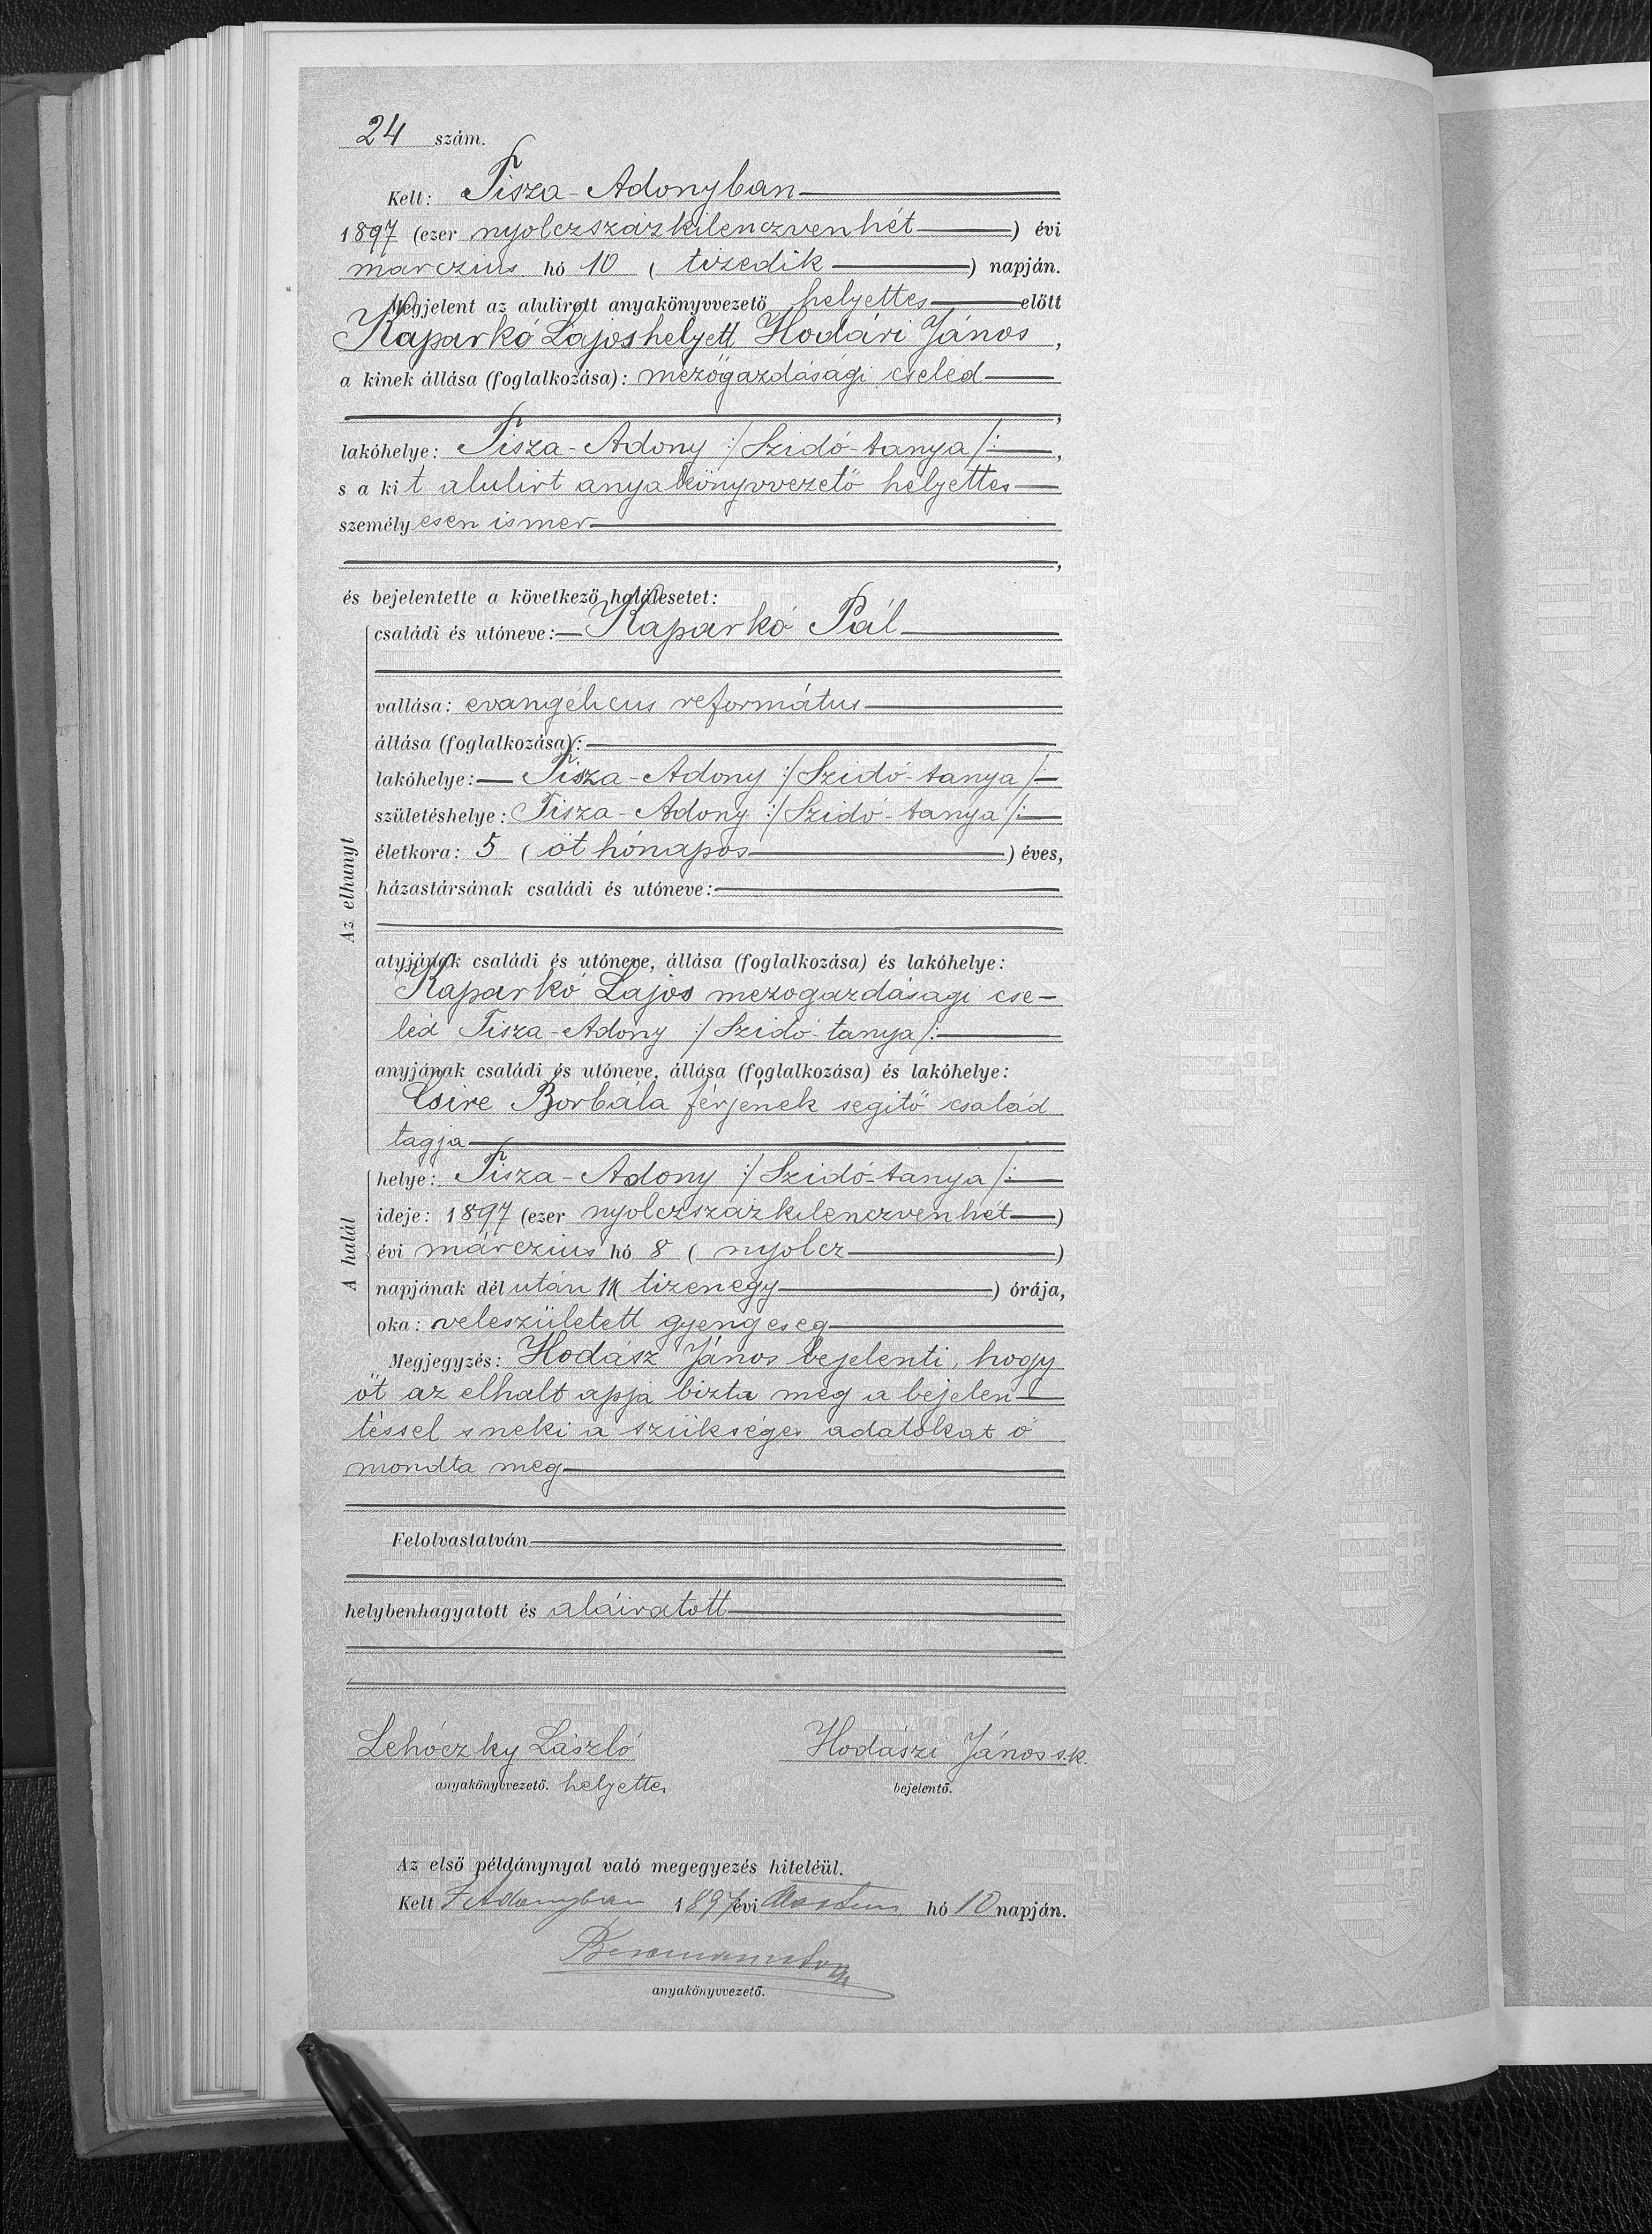 24 szám.
Kelt: Tisza-Adonyban
1897 (ezer nyolczszázkilenczvenhét) évi
marczius hó 10 (tizedik) napján.
Megjelent az alulirott anyakönyvvezető helyettes előtt
Kaparkó Lajos helyett Hodári János,
a kinek állása (foglalkozása): mezőgazdasági cseléd
,
lakóhelye: Tisza-Adony :/Szidó-tanya/:,
s a kit alulirt anyakönyvvezető helyettes
személyesen ismer
,
és bejelentette a következő halálesetet:
Az elhunyt
családi és utóneve: Kaparkó Pál
vallása: evangélicus református
állása (foglalkozása):
lakóhelye: Tisza-Adony :/Szidó-tanya/:
születéshelye: Tisza-Adony :/Szidó-tanya/:
életkora: 5 (öt hónapos) éves,
házastársának családi és utóneve:
atyjának családi és utóneve, állása (foglalkozása) és lakóhelye:
Kaparkó Lajos mezogazdásagi cse-
léd Tisza-Adony :/Szidó-tanya/:
anyjának családi és utóneve, állása (foglalkozása) és lakóhelye:
Csire Borbála férjének segitő család
tagja
A halál
helye: Tisza-Adony :/Szidó-tanya/:
ideje: 1897 (ezer nyolczszázkilenczvenhét)
évi márczius hó 8 (nyolcz)
napjának délután 11 (tizenegy) órája,
oka: veleszületett gyengeseg
Megjegyzés: Hodász János bejelenti, hogy
őt az elhalt apja bizta meg a bejelen-
téssel s neki a szükséges adatokat ő
mondta meg
Felolvastatván
helybenhagyatott és aláiratott
Lehóczky László Hodászi János s.k.
anyakönyvvezető. helyettes bejelentő.
Az első példánynyal való megegyezés hiteléül.
Kelt T Adonyban 1897 évi Martius hó 10 napján.
anyakönyvvezető.